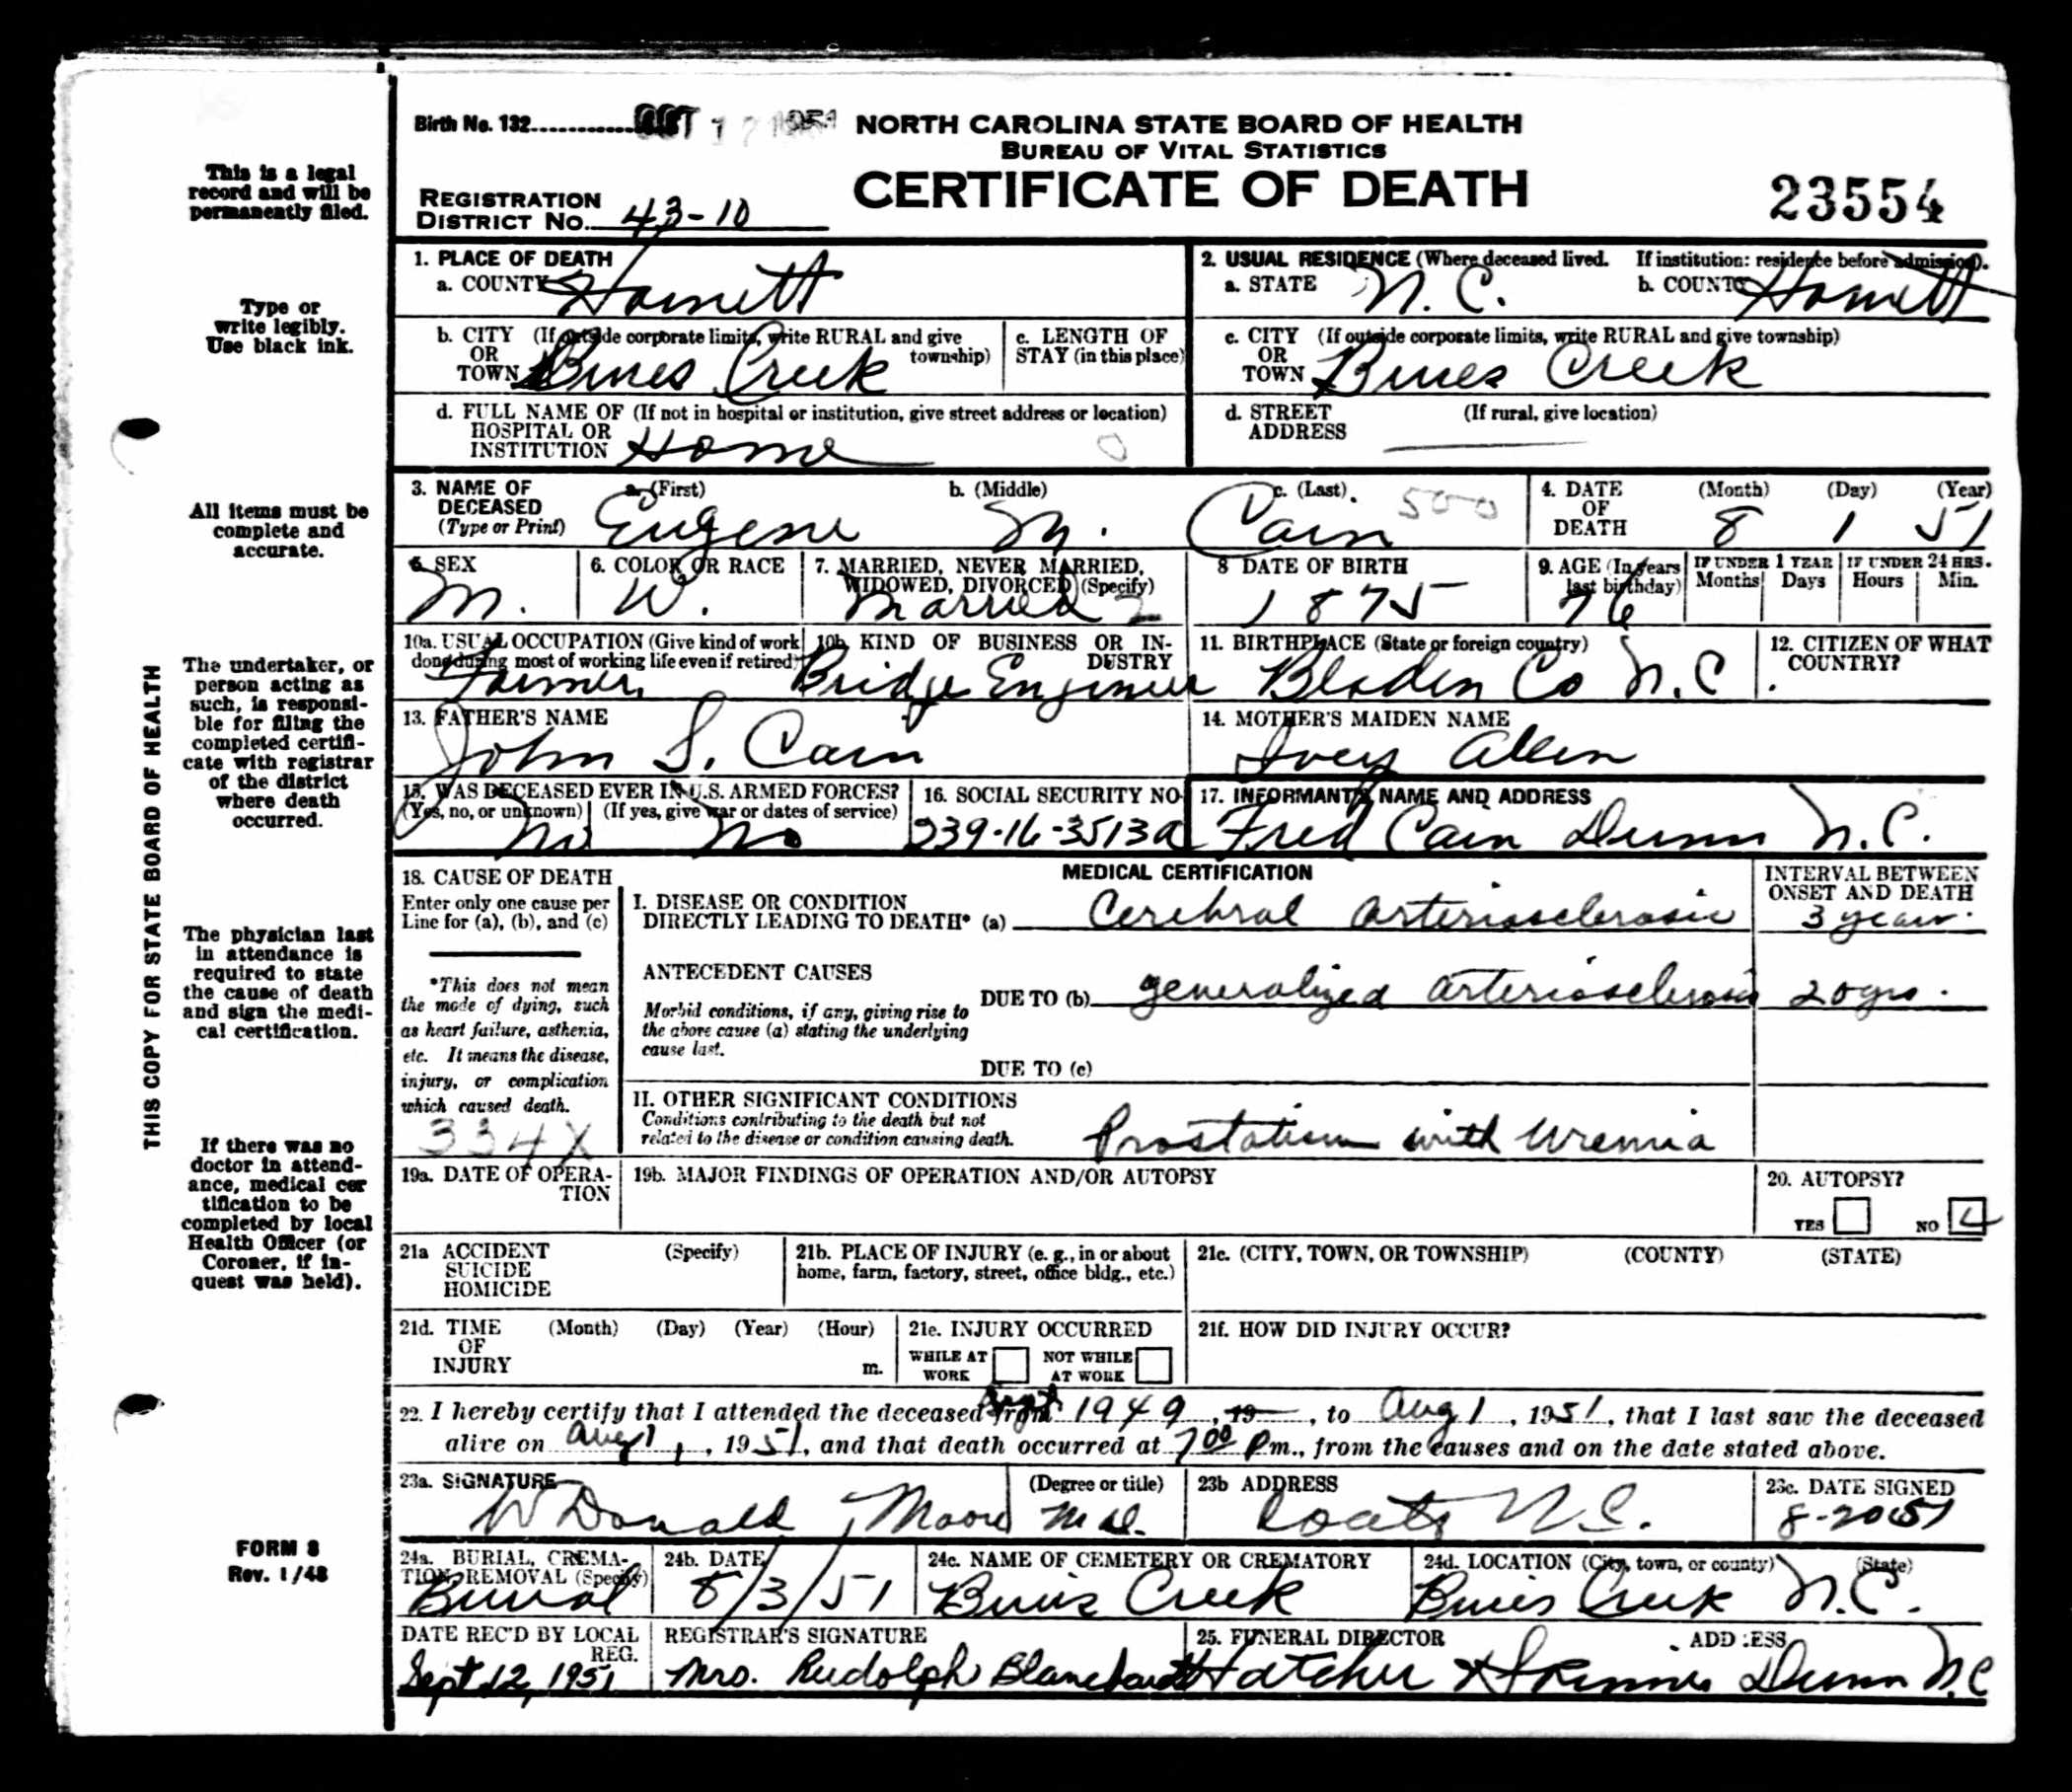 Birth No. 132 OCT 17 1951
NORTH CAROLINA STATE BOARD OF HEALTH
BUREAU OF VITAL STATISTICS
CERTIFICATE OF DEATH
23554
REGISTRATION
DISTRICT No. 43-10
This is a legal
record and will be
permanently filed.
Type or
write legibly.
Use black ink.
All items must be
complete and
accurate.
The undertaker, or
person acting as
such, is responsi-
ble for filing the
completed certifi-
cate with registrar
of the district
where death
occurred.
The physician last
in attendance is
required to state
the cause of death
and sign the medi-
cal certification.
If there was no
doctor in attend-
ance, medical cer
tification to be
completed by local
Health Officer (or
Coroner, if in-
quest was held).
FORM 8
Rev. 1/48
THIS COPY FOR STATE BOARD OF HEALTH
1. PLACE OF DEATH
a. COUNTY Harnett
2. USUAL RESIDENCE (Where deceased lived. If institution: residence before admission).
a. STATE N.C. b. COUNTY Harnett
b. CITY (If outside corporate limits, write RURAL and give
OR township)
TOWN Buies Creek
c. LENGTH OF
STAY (in this place)
c. CITY (If outside corporate limits, write RURAL and give township)
OR
TOWN Buies Creek
d. FULL NAME OF (If not in hospital or institution, give street address or location)
HOSPITAL OR
INSTITUTION Home 0
d. STREET (If rural, give location)
ADDRESS
3. NAME OF a. (First) b. (Middle) c. (Last)
DECEASED
(Type or Print) Eugene M. Cain 500
4. DATE (Month) (Day) (Year)
OF
DEATH 8 1 51
5. SEX
M.
6. COLOR OR RACE
W.
7. MARRIED, NEVER MARRIED,
WIDOWED, DIVORCED (Specify)
Married 2
8 DATE OF BIRTH
1875
9. AGE (In years
last birthday)
76
IF UNDER 1 YEAR
Months Days
IF UNDER 24 HRS.
Hours Min.
10a. USUAL OCCUPATION (Give kind of work
done during most of working life even if retired)
Farmer
10b. KIND OF BUSINESS OR IN-
DUSTRY
Bridge Engineer
11. BIRTHPLACE (State or foreign country)
Bladen Co N.C.
12. CITIZEN OF WHAT
COUNTRY?
13. FATHER'S NAME
John S. Cain
14. MOTHER'S MAIDEN NAME
Ivey Allen
15. WAS DECEASED EVER IN U.S. ARMED FORCES?
(Yes, no, or unknown) (If yes, give war or dates of service)
No No
16. SOCIAL SECURITY NO
239-16-3513a
17. INFORMANT'S NAME AND ADDRESS
Fred Cain Dunn N.C.
18. CAUSE OF DEATH
Enter only one cause per
Line for (a), (b), and (c)
*This does not mean
the mode of dying, such
as heart failure, asthenia,
etc. It means the disease,
injury, or complication
which caused death.
334X
MEDICAL CERTIFICATION
INTERVAL BETWEEN
ONSET AND DEATH
I. DISEASE OR CONDITION
DIRECTLY LEADING TO DEATH* (a) Cerebral arteriosclerosis 3 years.
ANTECEDENT CAUSES
Morbid conditions, if any, giving rise to
the above cause (a) stating the underlying
cause last.
DUE TO (b) generalized arteriosclerosis 20 yrs.
DUE TO (c)
II. OTHER SIGNIFICANT CONDITIONS
Conditions contributing to the death but not
related to the disease or condition causing death.
Prostatism with Uremia
19a. DATE OF OPERA-
TION
19b. MAJOR FINDINGS OF OPERATION AND/OR AUTOPSY
20. AUTOPSY?
YES NO
21a ACCIDENT (Specify)
SUICIDE
HOMICIDE
21b. PLACE OF INJURY (e. g., in or about
home, farm, factory, street, office bldg., etc.)
21c. (CITY, TOWN, OR TOWNSHIP) (COUNTY) (STATE)
21d. TIME (Month) (Day) (Year) (Hour)
OF
INJURY m.
21e. INJURY OCCURRED
WHILE AT NOT WHILE
WORK AT WORK
21f. HOW DID INJURY OCCUR?
22. I hereby certify that I attended the deceased from Sept 1949, 19, to Aug 1, 1951, that I last saw the deceased
alive on Aug 1, 1951, and that death occurred at 7:00 Pm., from the causes and on the date stated above.
23a. SIGNATURE (Degree or title)
W Donald Moore M.D.
23b ADDRESS
Coats N.C.
23c. DATE SIGNED
8-20-51
24a. BURIAL, CREMA-
TION, REMOVAL (Specify)
Burial
24b. DATE
8/3/51
24c. NAME OF CEMETERY OR CREMATORY
Buies Creek
24d. LOCATION (City, town, or county) (State)
Buies Creek N.C.
DATE REC'D BY LOCAL
REG.
Sept 12, 1951
REGISTRAR'S SIGNATURE
Mrs. Rudolph Blanchard
25. FUNERAL DIRECTOR ADDRESS
Hatcher & Skinner Dunn N.C